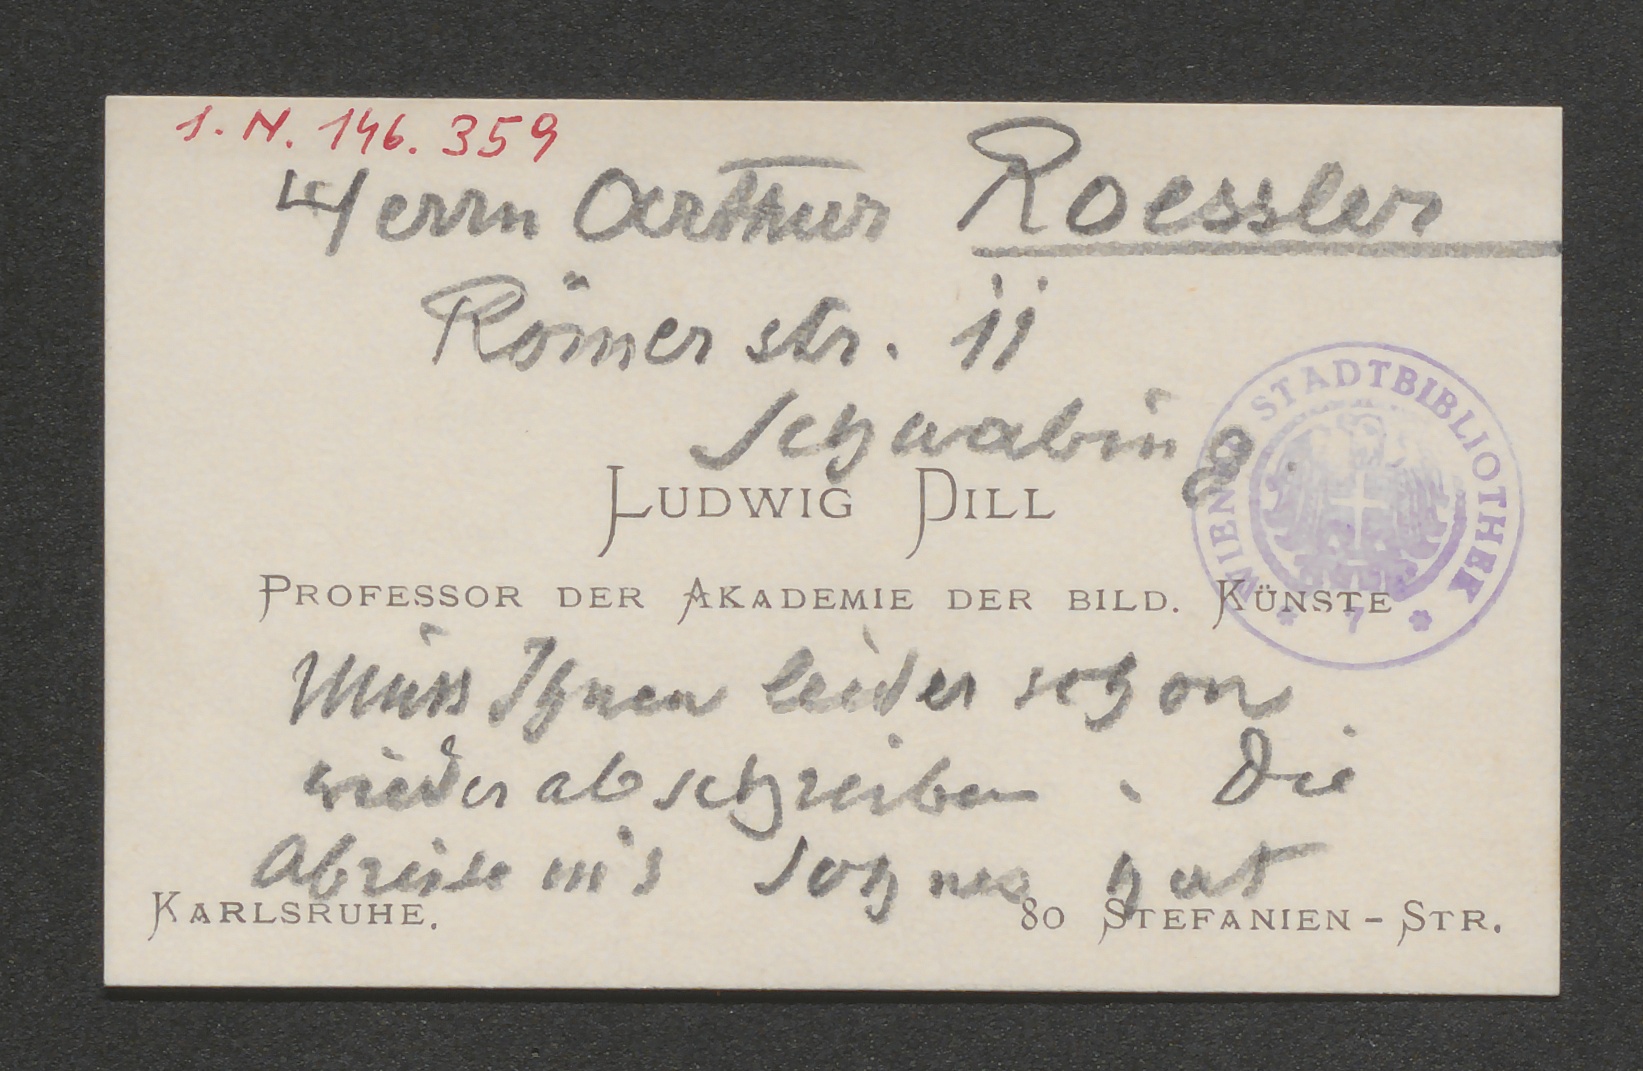 I.N. 146.359
Herrn Arthur Roessler
Römerstr. 11
Schwabing.
WIENER STADTBIBLIOTHEK
7
LUDWIG DILL
PROFESSOR DER AKADEMIE DER BILD. KÜNSTE
Muss Ihnen leider schon
wieder abschreiben. Die
Abreise m's Sohnes hat
KARLSRUHE.
80 STEFANIEN-STR.